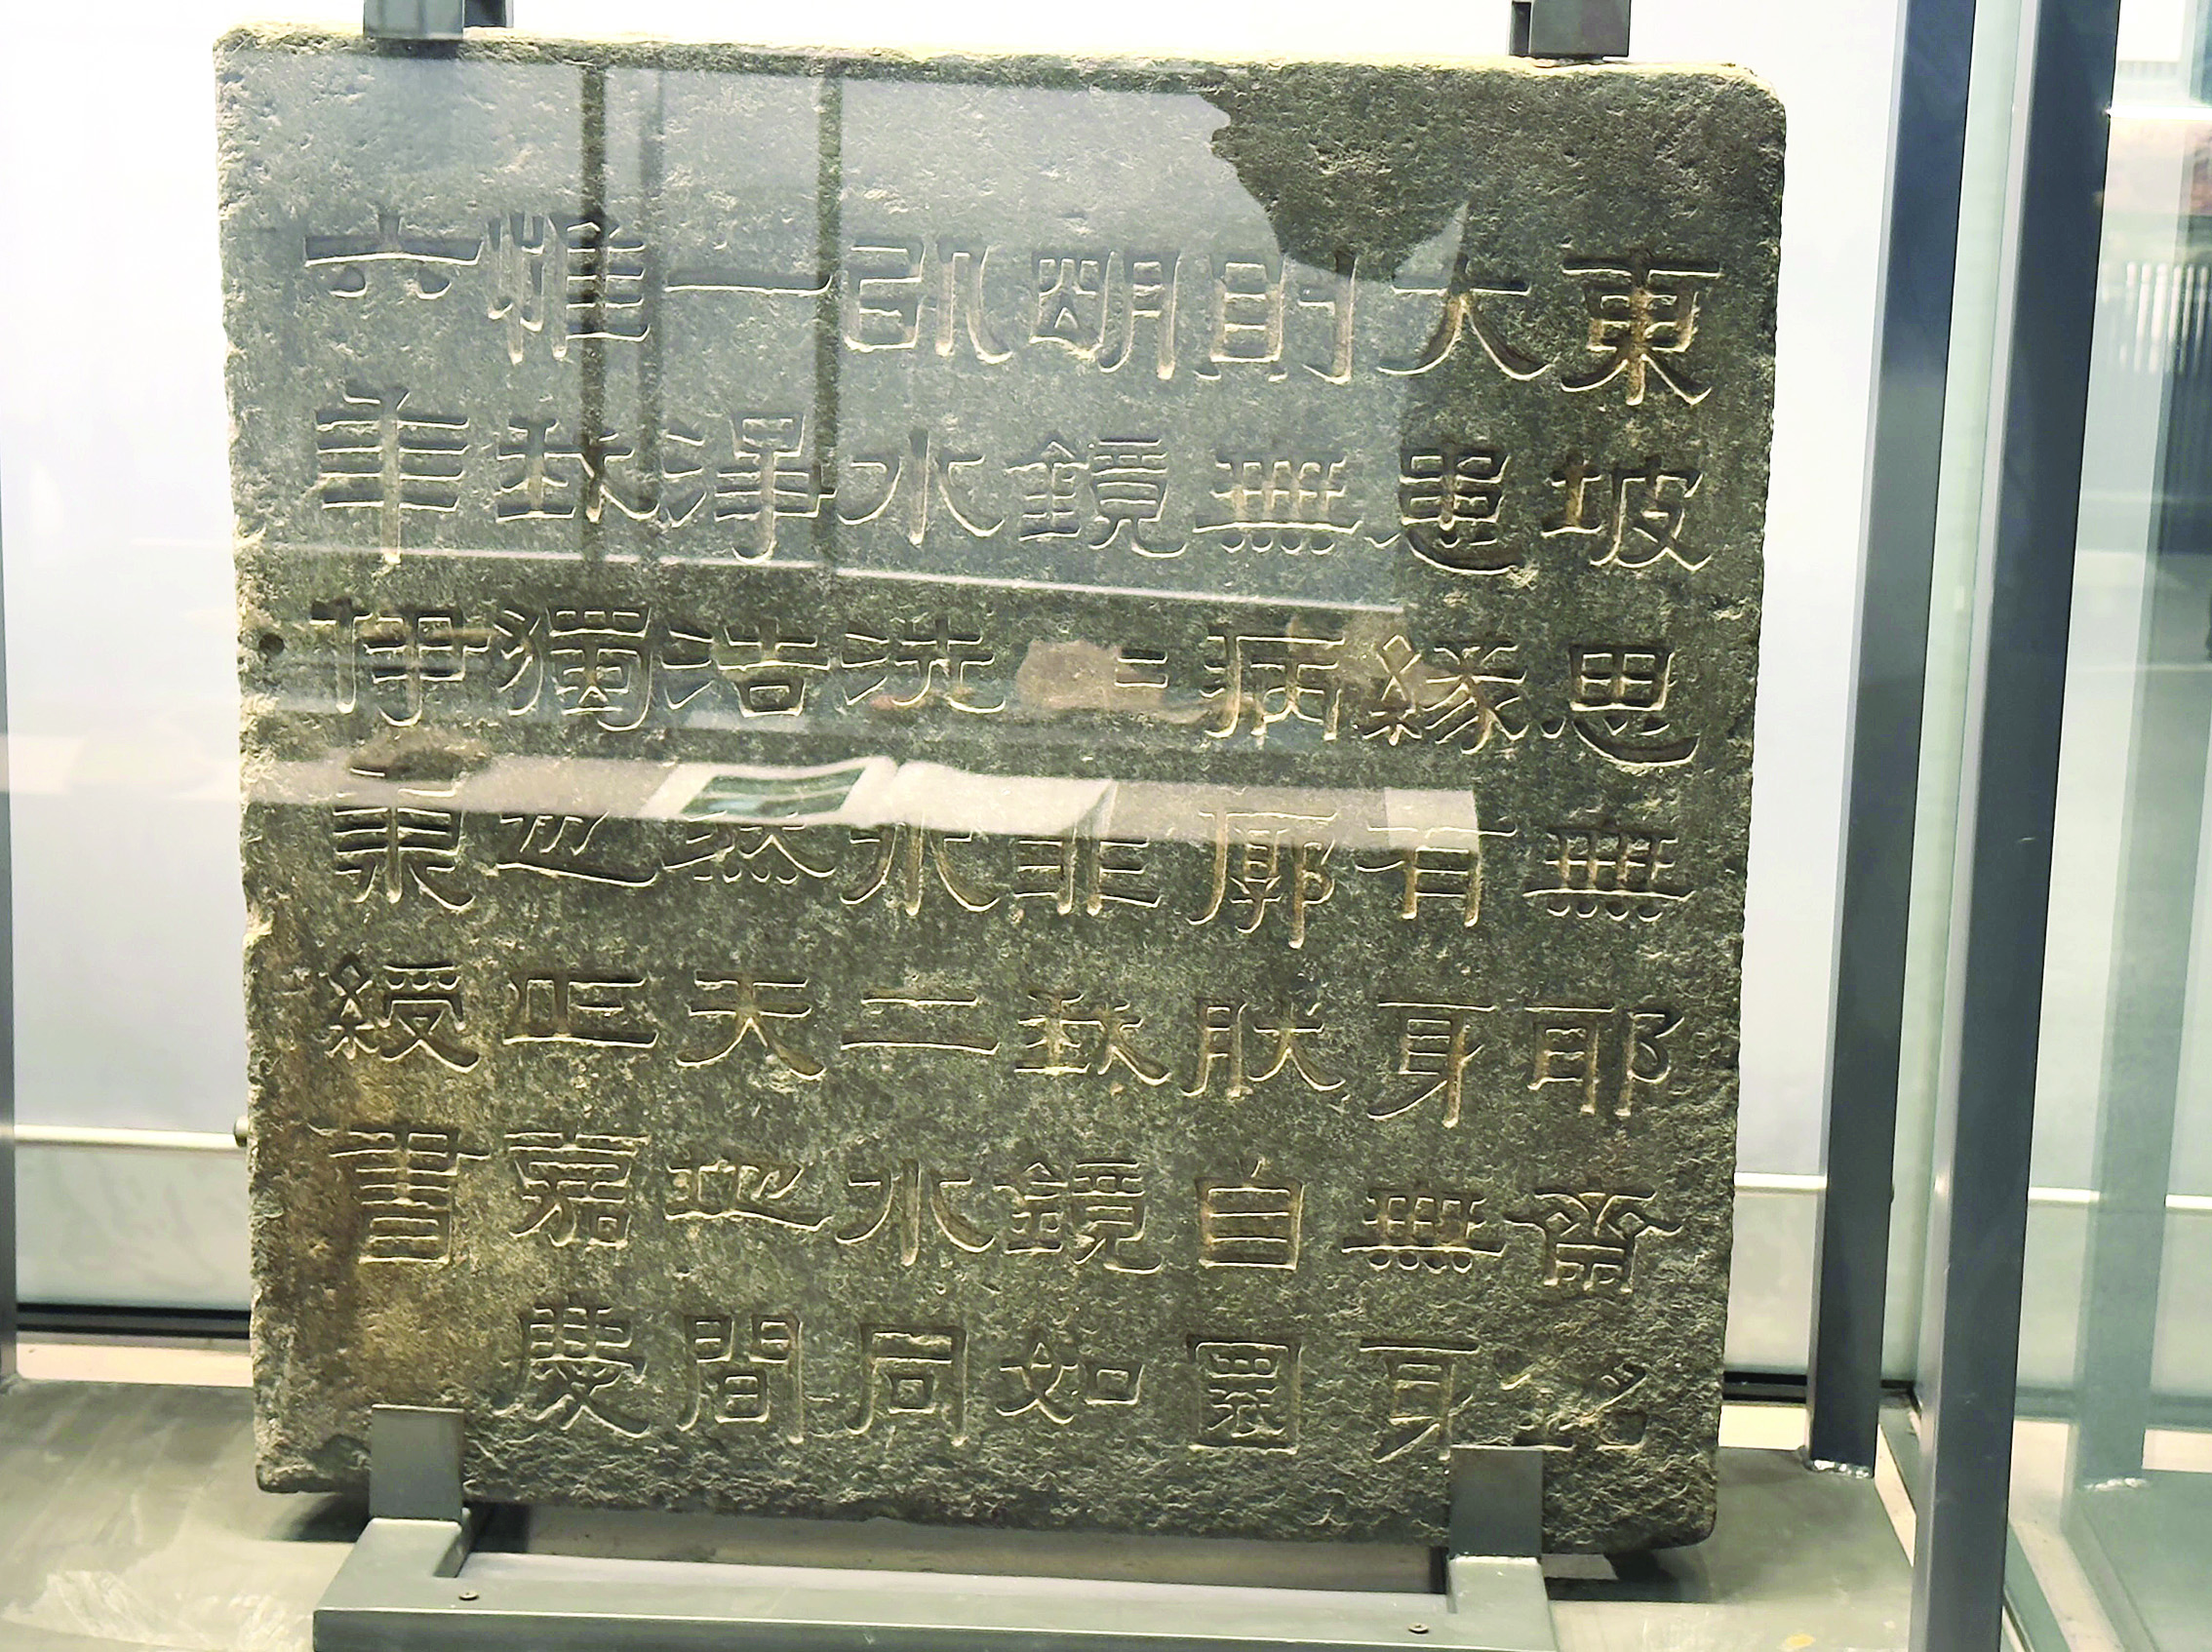 東坡思無耶齋銘
大患緣有身無身
則無病廓肰自圜
明鏡〻非我鏡如
㠯水洗水二水同
一淨浩然天地間
惟我獨也正嘉慶
六年伊秉綬書